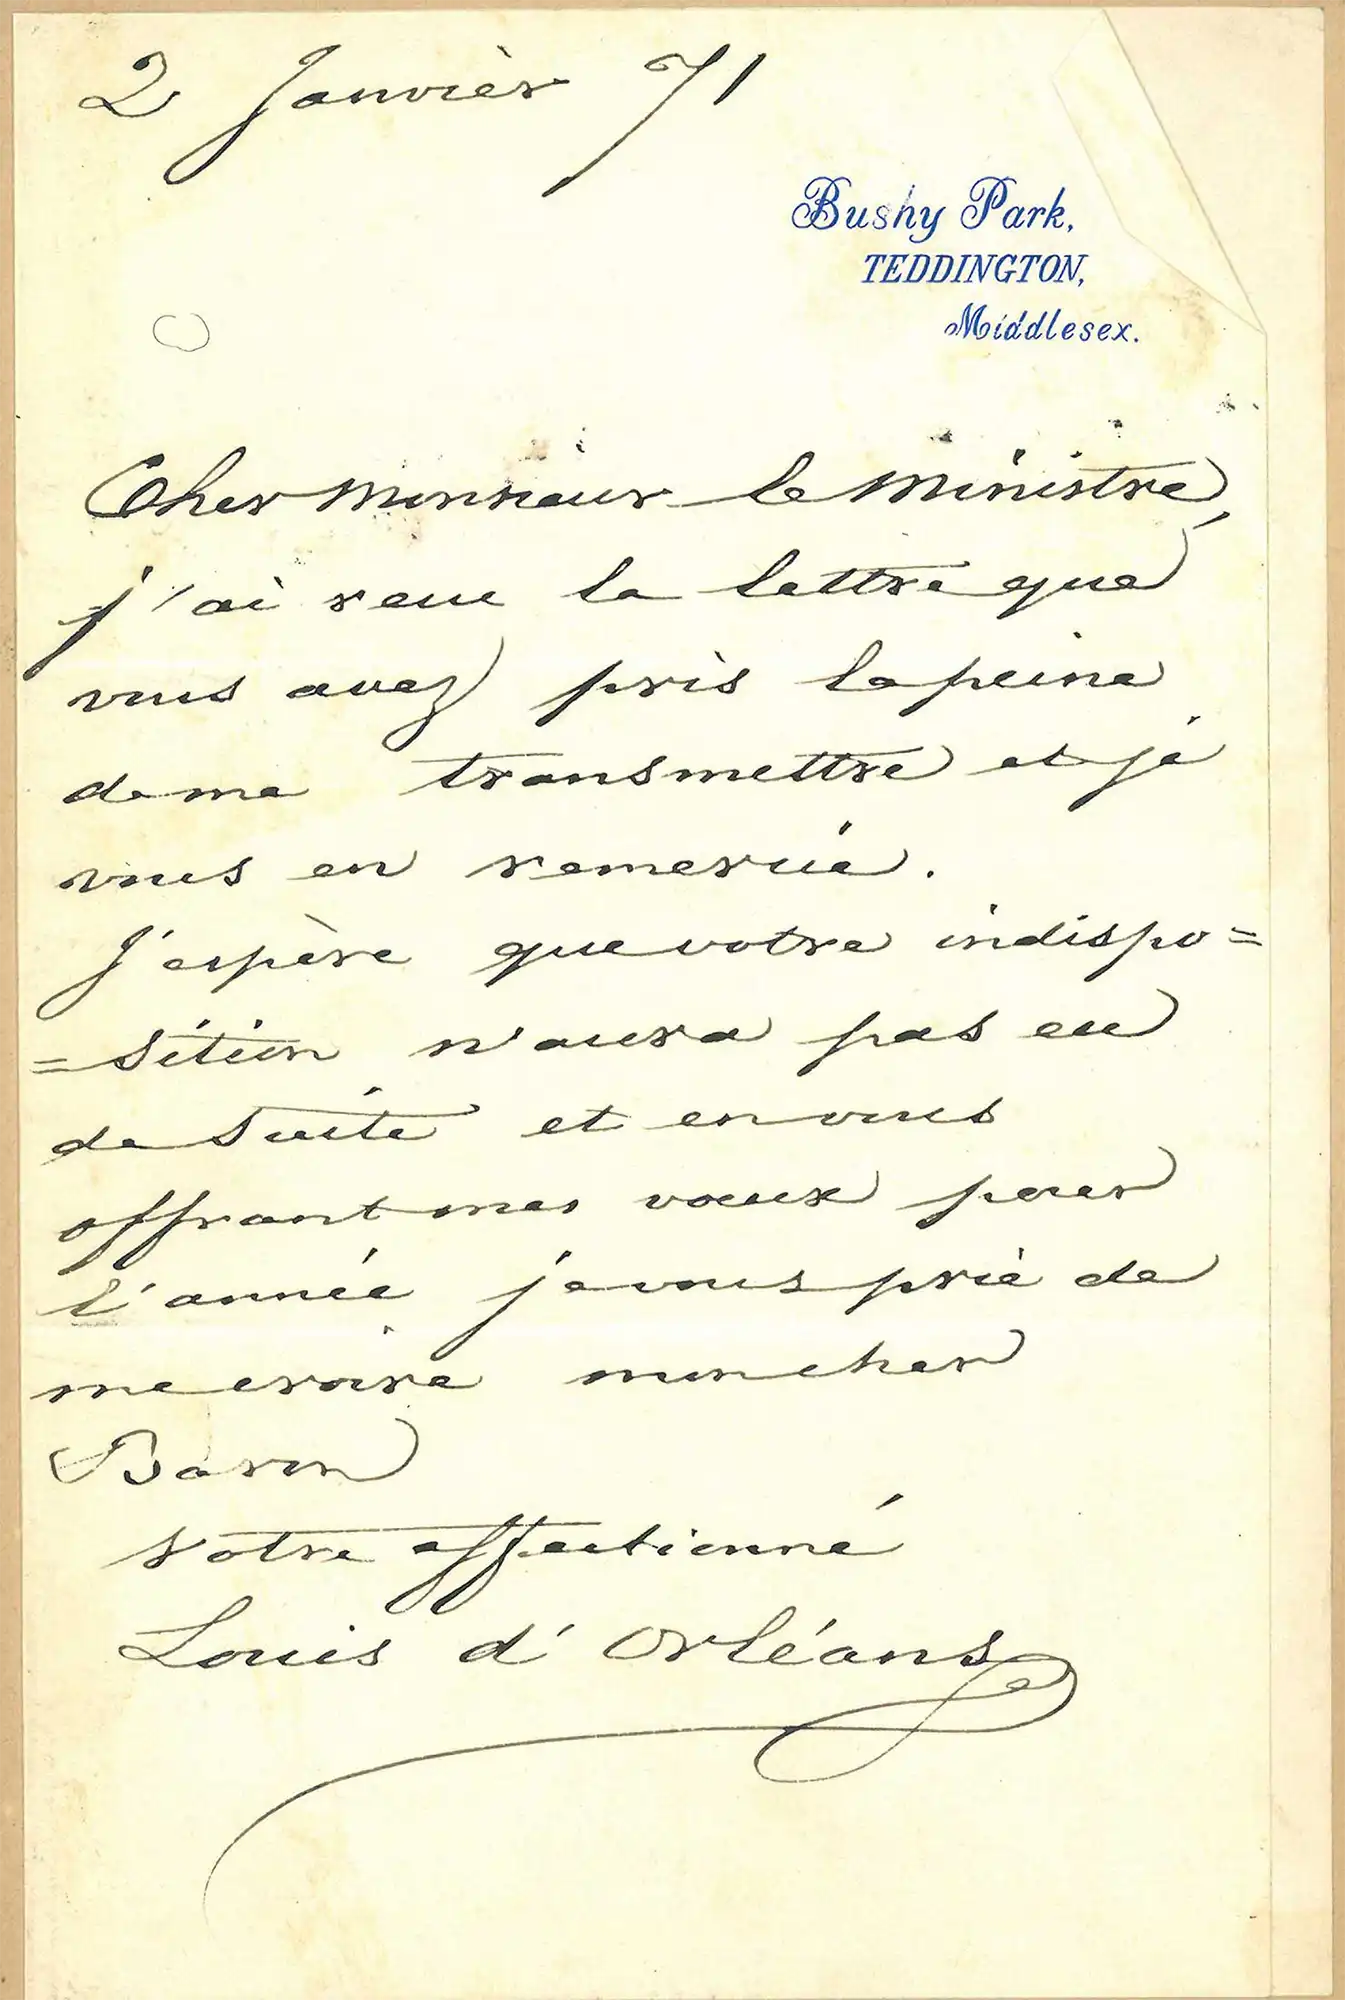 2 Janvièr 71
Bushy Park,
TEDDINGTON,
Middlesex.
Cher Monsieur le Ministre,
j'ai reçu la lettre que
vous avez pris la peine
de me transmettre et je
vous en remercie.
J'espère que votre indispo=
=sition n'aura pas eu
de suite et en vous
offrant mes vœux pour
l'année je vous prie de
me croire mon cher
Baron
Votre affectionné
Louis d'Orléans